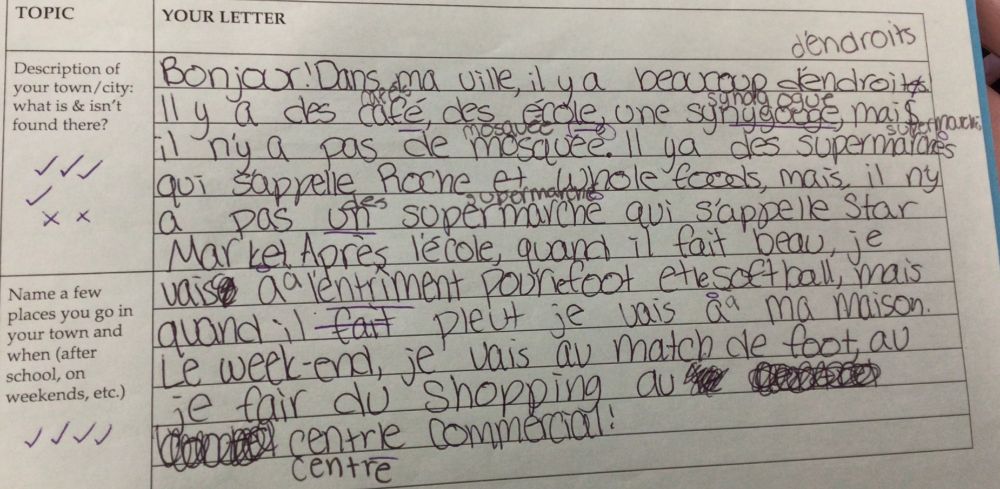 TOPIC
YOUR LETTER
d'endroits
Description of
your town/city:
what is & isn't
found there?
Bonjour! Dans ma ville, il y a beaucoup d'endroits
Il y a des café, des école, une synggoege, mais
synagogue
il n'y a pas de mosquée. Il ya des supermarchés
mosquée
supermarché
qui s'appelle Roche et Whole foods, mais, il n'y
a pas un supermarché qui s'appelle Star
des supermarchés
Market. Après l'école, quand il fait beau, je
Name a few
places you go in
your town and
when (after
school, on
weekends, etc.)
vais à l'entriment pour foot et softball, mais
quand il fait pleut je vais à ma maison.
Le week-end, je vais au match de foot, au
je fair du shopping au
centrle commercial!
centre